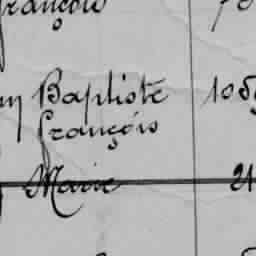 François
Baptiste 105
François
Marie 21